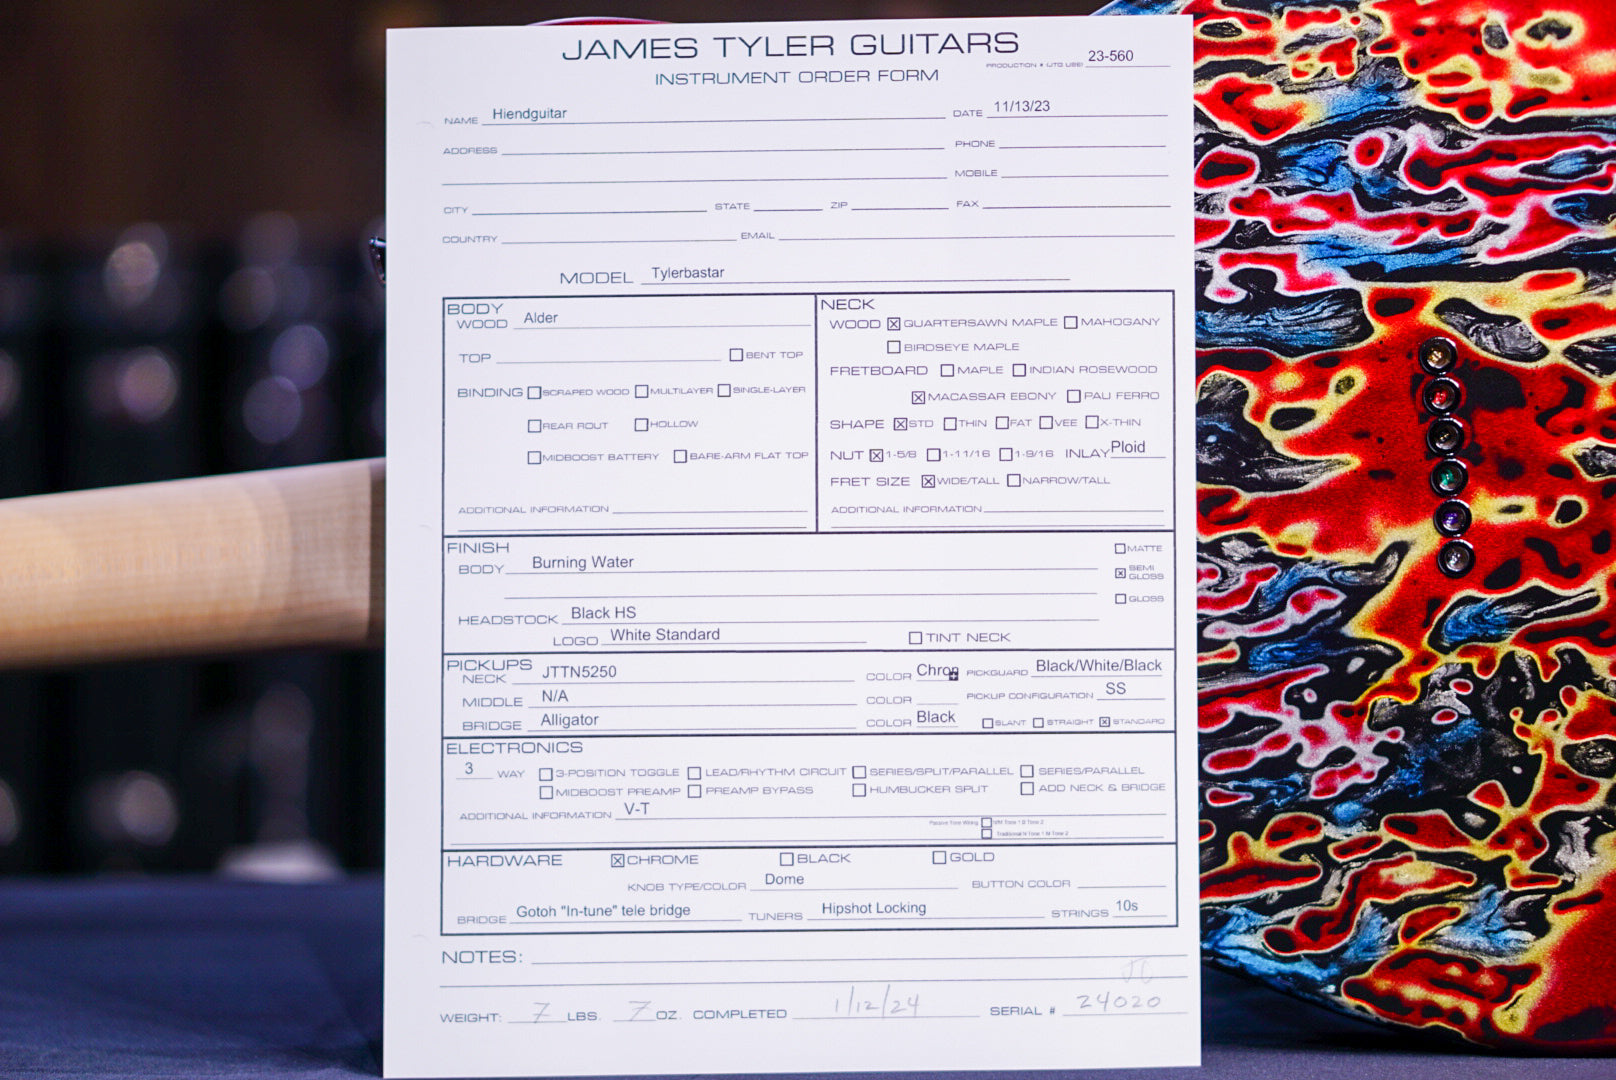 JAMES TYLER GUITARS
PRODUCTION # (JTG USE) 23-560
INSTRUMENT ORDER FORM
NAME Hiendguitar DATE 11/13/23
ADDRESS PHONE
MOBILE
CITY STATE ZIP FAX
COUNTRY EMAIL
MODEL Tylerbastar
BODY
WOOD Alder
TOP BENT TOP
BINDING SCRAPED WOOD MULTILAYER SINGLE-LAYER
REAR ROUT HOLLOW
MIDBOOST BATTERY BARE-ARM FLAT TOP
ADDITIONAL INFORMATION
NECK
WOOD ☒ QUARTERSAWN MAPLE ☐ MAHOGANY
☐ BIRDSEYE MAPLE
FRETBOARD ☐ MAPLE ☐ INDIAN ROSEWOOD
☒ MACASSAR EBONY ☐ PAU FERRO
SHAPE ☒ STD ☐ THIN ☐ FAT ☐ VEE ☐ X-THIN
NUT ☒ 1-5/8 ☐ 1-11/16 ☐ 1-9/16 INLAY Ploid
FRET SIZE ☒ WIDE/TALL ☐ NARROW/TALL
ADDITIONAL INFORMATION
FINISH
☐ MATTE
BODY Burning Water ☒ SEMI GLOSS
☐ GLOSS
HEADSTOCK Black HS
LOGO White Standard ☐ TINT NECK
PICKUPS
NECK JTTN5250 COLOR Chron PICKGUARD Black/White/Black
MIDDLE N/A COLOR PICKUP CONFIGURATION SS
BRIDGE Alligator COLOR Black ☐ SLANT ☐ STRAIGHT ☒ STANDARD
ELECTRONICS
3 WAY ☐ 3-POSITION TOGGLE ☐ LEAD/RHYTHM CIRCUIT ☐ SERIES/SPLIT/PARALLEL ☐ SERIES/PARALLEL
☐ MIDBOOST PREAMP ☐ PREAMP BYPASS ☐ HUMBUCKER SPLIT ☐ ADD NECK & BRIDGE
ADDITIONAL INFORMATION V-T
Passive Tone Wiring ☐ N/M Tone 1 B Tone 2
☐ Traditional N Tone 1 M Tone 2
HARDWARE ☒ CHROME ☐ BLACK ☐ GOLD
KNOB TYPE/COLOR Dome BUTTON COLOR
BRIDGE Gotoh "In-tune" tele bridge TUNERS Hipshot Locking STRINGS 10s
NOTES:
WEIGHT: 7 LBS. 7 OZ. COMPLETED 1/12/24 SERIAL # 24020